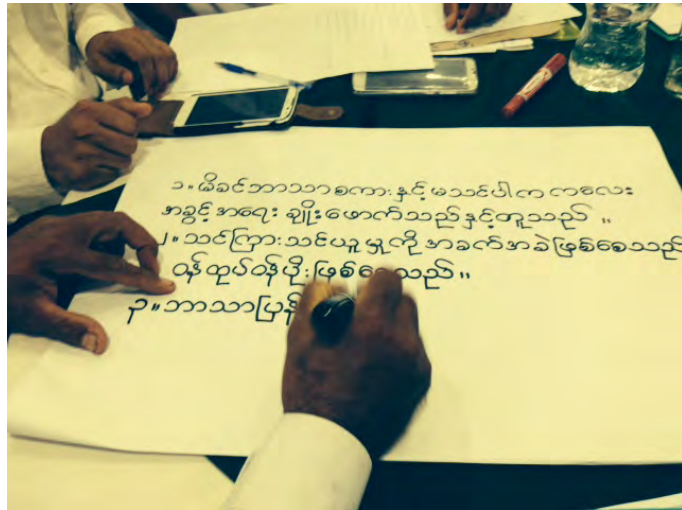 ၁။ မိခင်ဘာသာစကားနှင့်မသင်ပါက ကလေး
အခွင့်အရေး ချိုးဖောက်သည်နှင့်တူသည်။
၂။ သင်ကြားသင်ယူမှုကို အခက်အခဲဖြစ်စေသည်
ဝန်ထုပ်ဝန်ပိုးဖြစ်စေသည်။
၃။ ဘာသာပြန်